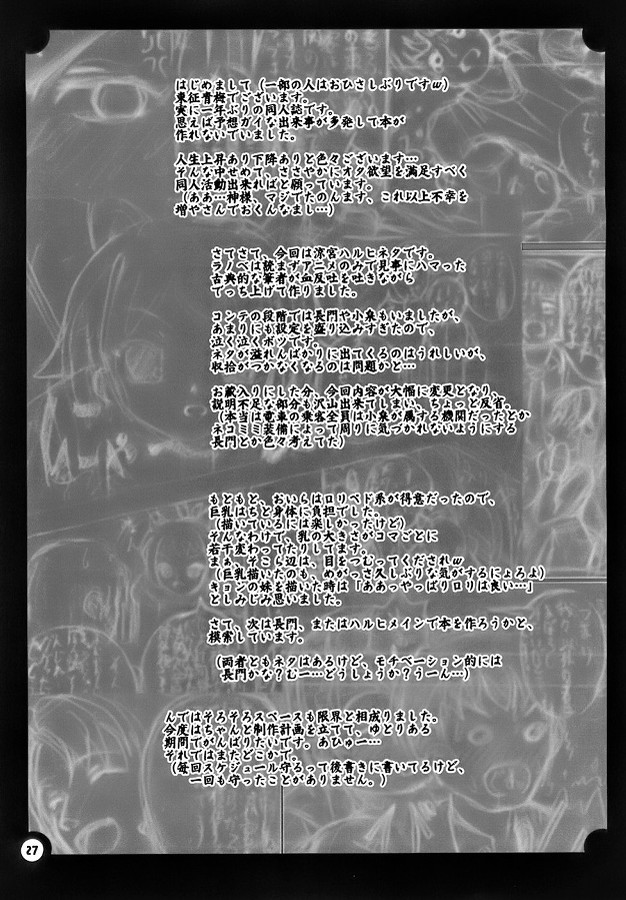 はじめまして（一部の人はおひさしぶりですw）
東征青梅でございます。
実に一年ぶりの同人誌です。
思えば予想ガイな出来事が多発して本が
作れないでいました。
人生上昇あり下降ありと色々ございます…
そんな中せめて、ささやかにオタ欲望を満足すべく
同人活動出来ればと願っています。
（ああ…神様、マジでたのんます、これ以上不幸を
増やさんでおくんなまし…）
さてさて、今回は涼宮ハルヒネタです。
ラノベは読まずアニメのみで見事にハマった
古典的な筆者が血反吐を吐きながら
でっち上げて作りました。
コンテの段階では長門や小泉もいましたが、
あまりにも設定を盛り込みすぎたので、
泣く泣くボツです。
ネタが溢れんばかりに出てくるのはうれしいが、
収拾がつかなくなるのは問題かと…
お蔵入りにした分、今回内容が大幅に変更となり、
説明不足な部分も沢山出来てしまい、ちょっと反省。
（本当は電車の乗客全員は小泉が属する機関だったとか
ネコミミ装備によって周りに気づかれないようにする
長門とか色々考えてた）
もともと、おいらはロリペド系が得意だったので、
巨乳はちと身体に負担でした。
（描いているには楽しかったけど）
そんなわけで、乳の大きさがコマごとに
若干変わってたりしてます。
まぁ、そこら辺は、目をつむってくだされw
（巨乳描いたのも、めがっさ久しぶりな気がするにょろよ）
キョンの妹を描いた時は「ああっやっぱりロリは良い…」
としみじみ思いました。
さて、次は長門、またはハルヒメインで本を作ろうかと、
模索しています。
（両者ともネタはあるけど、モチベーション的には
長門かな？むー…どうしようか？うーん…）
んではそろそろスペースも限界と相成りました。
今度はちゃんと制作計画を立てて、ゆとりある
期間でがんばりたいです。あひゅー…
それではまたどこかで。
（毎回スケジュール守るって後書きに書いてるけど、
一回も守ったことがありません。）
27